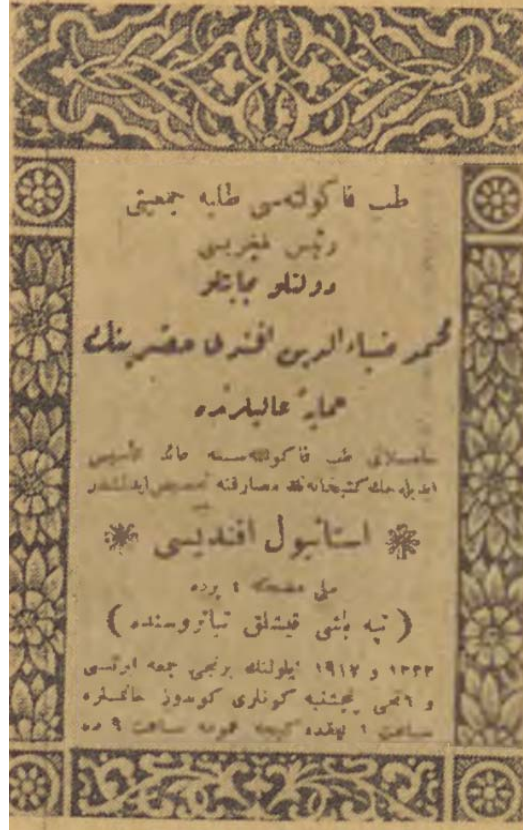 طب فاكولته‌سی طلبه جمعیتی
رئیس فخریسی
دولتلو نجابتلو
محمد ضیاءالدین افندی حضرتلرینك
حمایهٔ عالیلرنده
حاصلاتی طب فاكولته‌سنه عائد تأسیس
ایدیله‌جك كتبخانه‌نك مصارفنه تخصیص ایدلمشدر
استانبول افندیسی
ملی مضحكه ٤ پرده
( تپه باشی قیشلق تیاتروسنده )
١٣٣٣ و ١٩١٧ ایلولنك برنجی جمعه ایرتسی
و ٦نجی پنجشنبه كونلری كوندوز خانملره
ساعت ١ بچقده كیجه عمومه ساعت ٩ ده